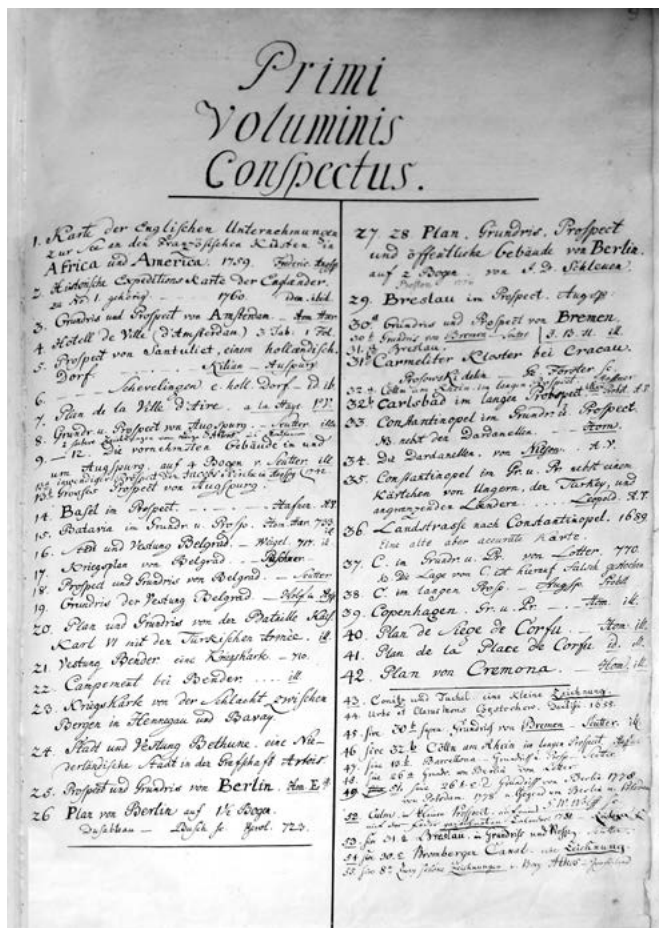 Primi
Voluminis
Conspectus.
1. Karte der Englischen Unternehmungen
zur See an den Französischen Küsten in
Africa und America. 1759.
2. Historische Expeditions Karte der Engländer.
zu No 1. gehörig. 1760.
3. Grundris und Prospect von Amsterdam.
4. Hotell de Ville (d'Amsterdam) 3 Tab. 1 Vol.
5. Prospect von Santuliet, einem holländisch.
Dorf. Kilian - Auspurg
6. - Schevelingen e. holl. Dorf - id. ib.
7. Plan de la Ville d'Aire. a la Haye
8. Grundr. u. Prospect von Augspurg. - Seutter. ill.
9. - 12. Die vornehmsten Gebäude in und
um Augspurg, auf 4 Bogen v. Seutter. ill.
13b. Grosser Prospect von Augspurg.
14. Basel in Prospect.
15. Batavia in Grundr. u. Prosp.
16. Stadt und Vestung Belgrad.
17. Kriegsplan von Belgrad.
18. Prospect und Grundris von Belgrad. - Seutter.
19. Grundris der Vestung Belgrad.
20. Plan und Grundris von der Bataille Kais.
Karl VI mit den Türkischen Armee. ill.
21. Vestung Bender. eine Kriegskarte.
22. Campement bei Bender. ill.
23. Kriegskarte von der Schlacht zwischen
Bergen in Hennegau und Bavay.
24. Stadt und Vestung Bethune. eine Nie-
derländische Stadt in der Grafschaft Artois.
25. Prospect und Grundris von Berlin.
26 Plan von Berlin auf 1½ Bogen.
Dusableau - Busch sc. 723.
27. 28 Plan. Grundris. Prospect
und öffentliche Gebäude von Berlin.
auf 2 Bogen. von J. D. Schleuen.
29. Breslau im Prospect.
30a Grundris und Prospect von Bremen.
30b Grundris von Bremen - Seuter
31. Breslau.
31b Carmeliter Kloster bei Cracau.
Förster sc.
32a Cölln am Rhein. im langen Prospect.
32b Carlsbad im langen Prospect
33. Constantinopel im Grundr. u. Prospect.
NB. nebst den Dardanellen. - Hom.
34. Die Dardanellen. A. V.
35. Constantinopel im Gr. u. Pr. nebst einem
Kärtchen von Ungern, der Turkey, und
angränzenden Ländern. Leopold. A. V.
36 Landstrasse nach Constantinopel. 1689
Eine alte aber accurate Karte.
37. C. in Grundr. u. Pr. von Lotter. 770.
Die Lage von C. ist hierauf falsch gestochen
38. C. im langen Prosp.
39. Copenhagen. Gr. u. Pr. - Hom. ill.
40. Plan de Siege de Corfu. - Hom. ill.
41. Plan de la Place de Corfu. id. ill.
42. Plan von Cremona. - Hom. ill.
43. Conitz und Tuchel. eine kleine Zeichnung.
45. 30b Grundris von Bremen - Seutter. ill.
46 32b Cölln am Rhein im langen Prospect.
47. Barcellona
48. Berlin
49. Berlin 1778
von Potsdam. 1778
52. Culm. in kleinem Prospect.
53. Breslau.
54. Bromberger Canal. Zeichnung.
55. Zeichnungen